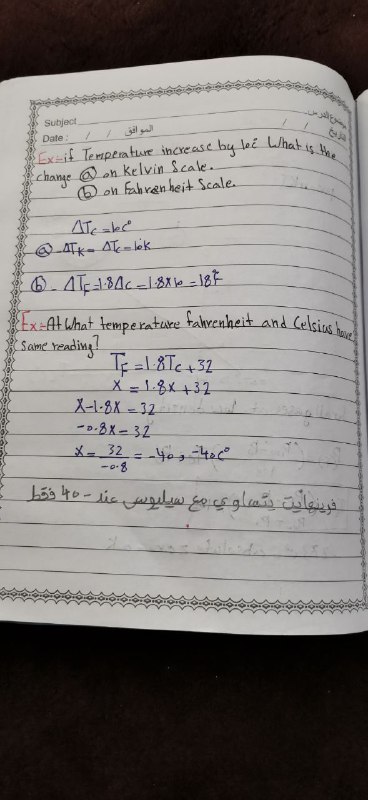 Subject
موضوع الدرس
Date : / / الموافق / / التاريخ
Ex:- if Temperature increase by 10c° What is the
change ⓐ on Kelvin Scale.
ⓑ on Fahrenheit Scale.
ΔTc = 10c°
ⓐ - ΔTK = ΔTc = 10K
ⓑ - ΔTF = 1.8Δc = 1.8x10 = 18F°
Ex:- At What temperature fahrenheit and Celsius have
same reading?
TF = 1.8Tc + 32
x = 1.8x + 32
x - 1.8x = 32
-0.8x = 32
x = 32/-0.8 = -40, -40c°
فرينهايت يتساوي مع سيليوس عند -40 فقط